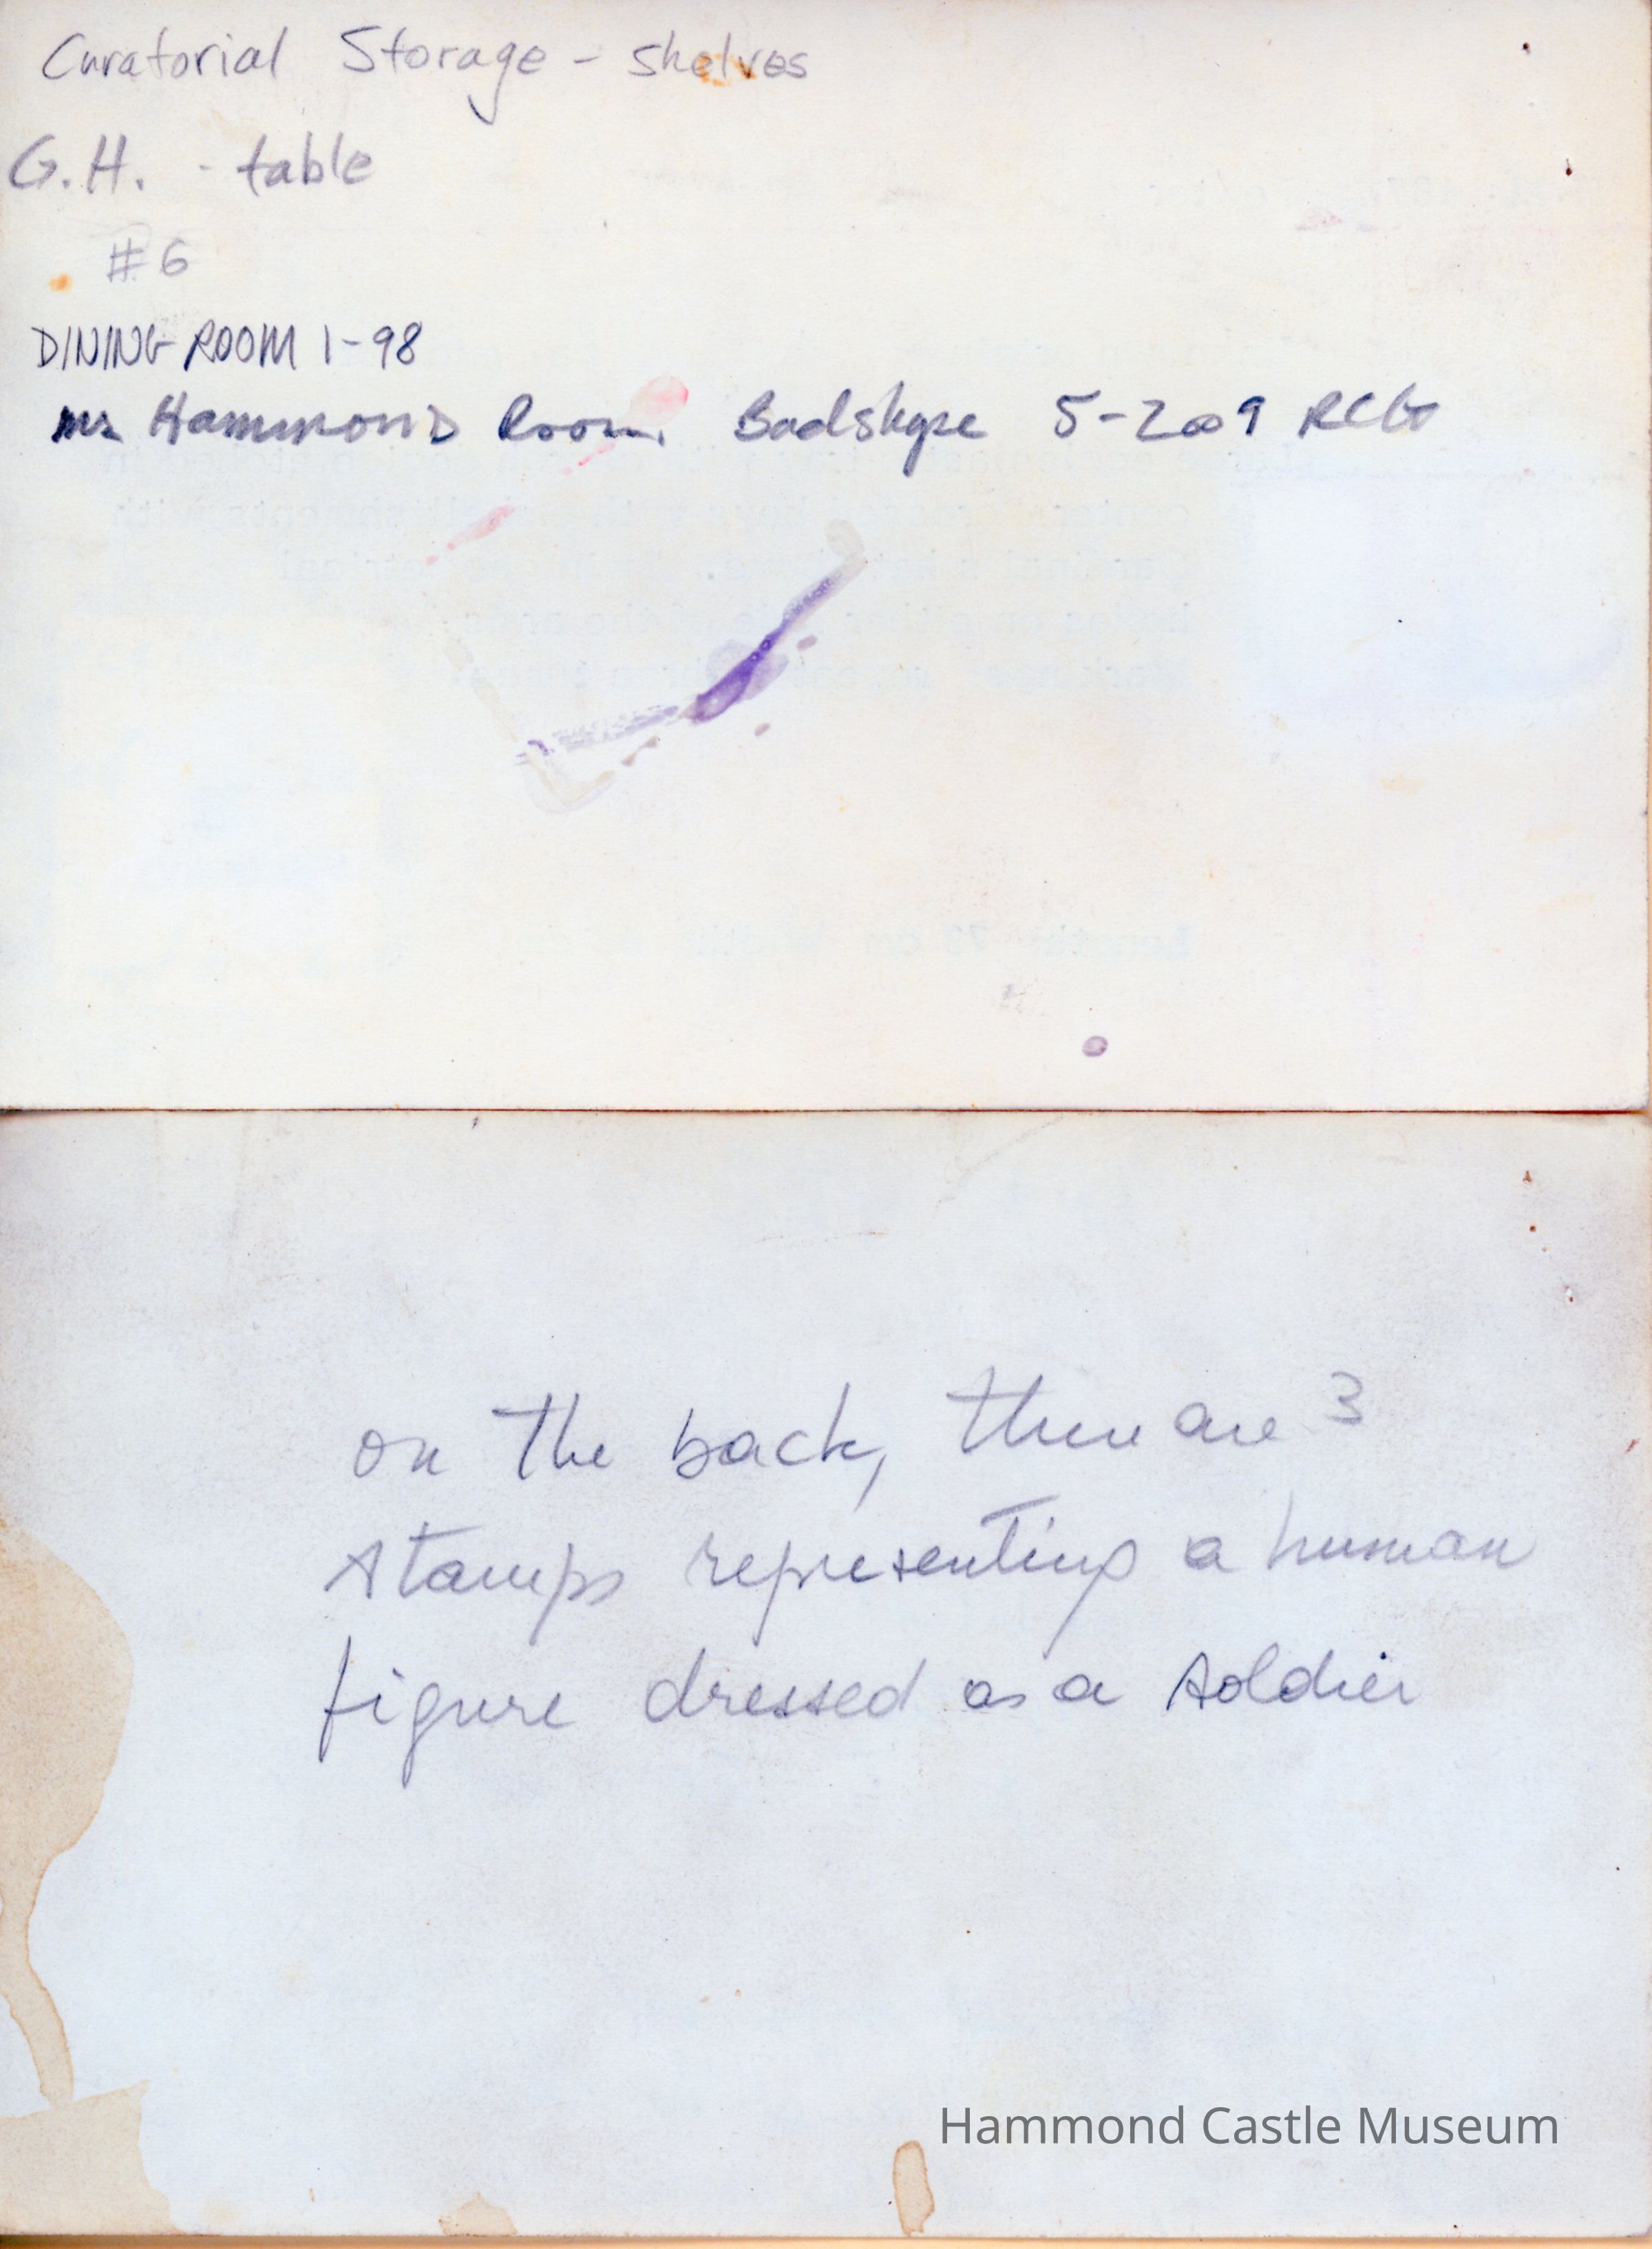 Curatorial Storage - shelves
G.H. - table
#6
DINING ROOM 1-98
Mr Hammond Room 5-2009 RCG
on the back, there are 3
stamps representing a human
figure dressed as a soldier
Hammond Castle Museum